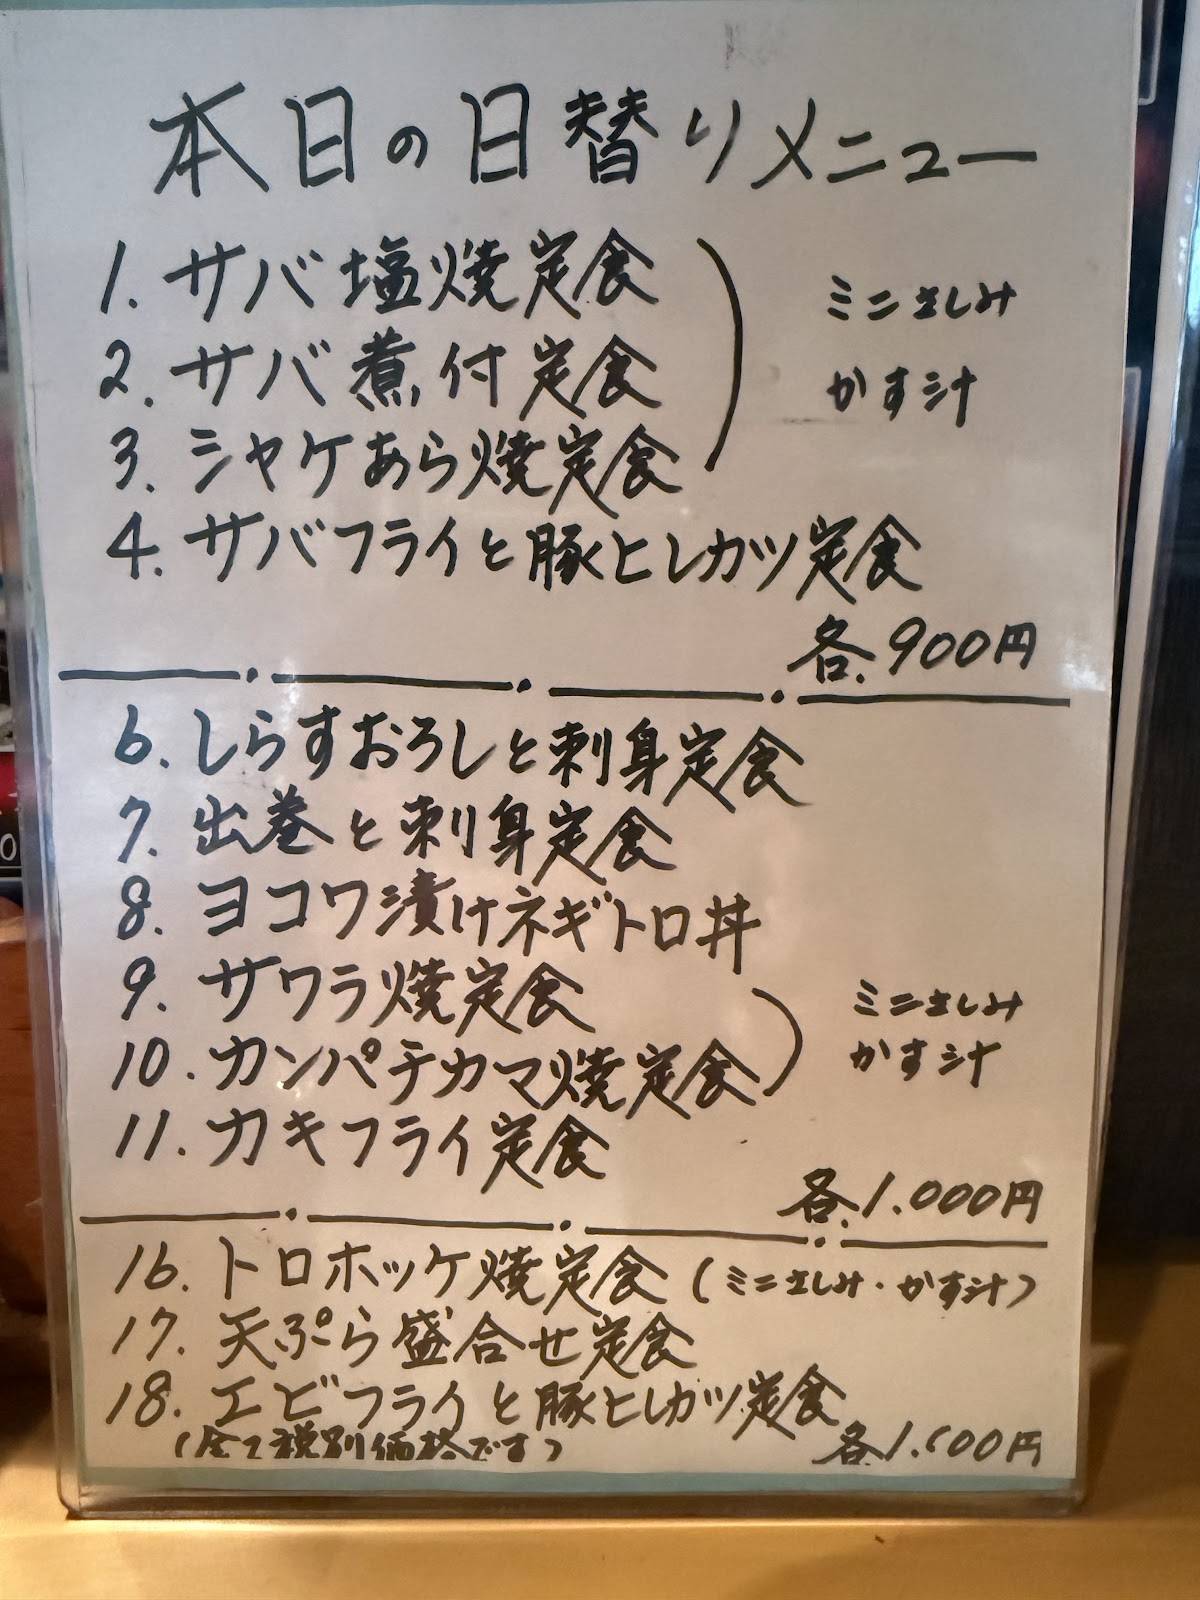 本日の日替りメニュー
1. サバ塩焼定食
2. サバ煮付定食
3. シャケあら焼定食
ミニさしみ
かす汁
4. サバフライと豚ヒレカツ定食
各. 900円
6. しらすおろしと刺身定食
7. 出巻と刺身定食
8. ヨコワ漬けネギトロ丼
9. サワラ焼定食
10. カンパチカマ焼定食
ミニさしみ
かす汁
11. カキフライ定食
各. 1.000円
16. トロホッケ焼定食 (ミニさしみ・かす汁)
17. 天ぷら盛合せ定食
18. エビフライと豚ヒレカツ定食
(全て税別価格です)